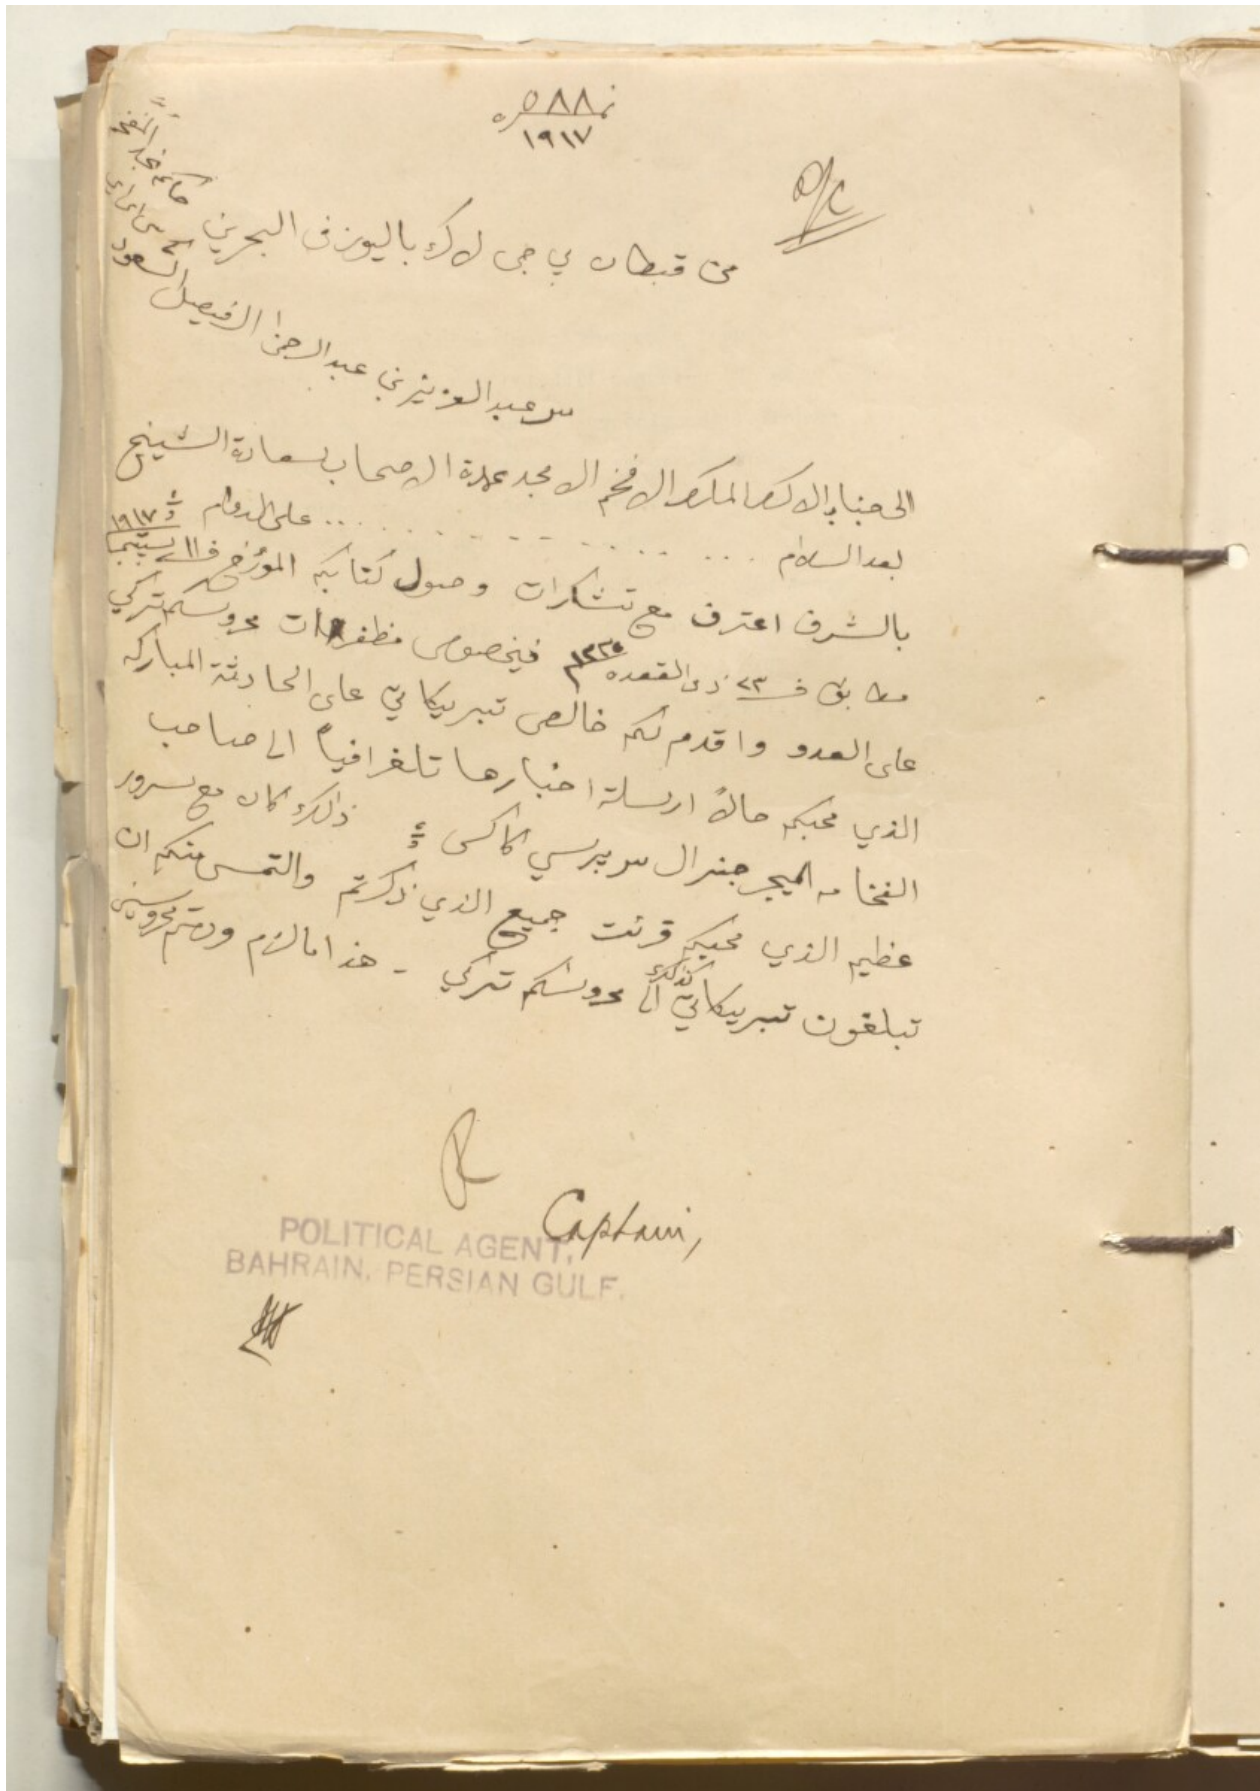 نمرة ٥٨٨
١٩١٧
O/C
من قبطان بي جي لاك باليوز في البحرين
الى جناب الاكرم المكرم الافخم الامجد عمدة الاصحاب سعادة الشيخ
سر عبد العزيز بن عبد الرحمن الفيصل السعود
حاكم نجد المفخم
بعد السلام ... على الدوام
بالشرف اعترف مع تشكرات وصول كتابكم المؤرخ في ١١ سپتمبر ١٩١٧
مطابق في ٢٣ ذى القعده ١٣٣٥ فيخصوص مظفرات محروسكم تركي
على العدو واقدم لكم خالص تبريكاتي على الحادثة المباركه
الذي محبكم حالاً ارسلة اخبارها تلغرافياً الى صاحب
الفخامه الميجر جنرال سر پرسي كاكس ذالك كان مع سرور
عظيم الذي محبكم قرئت جميع الذي ذكرتم والتمس منكم ان
تبلغون تبريكاتي كذلك الى محروسكم تركي - هذا ما لزم ودمتم محروسين
Captain,
POLITICAL AGENT,
BAHRAIN, PERSIAN GULF.